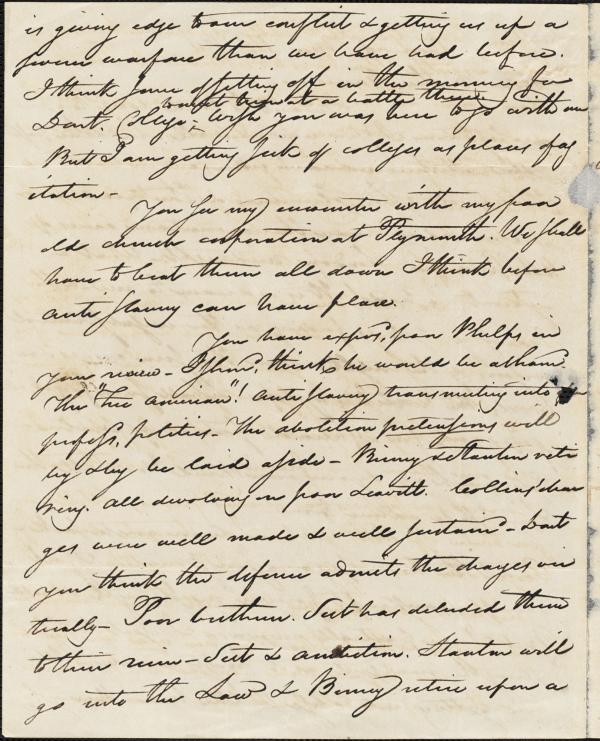 is giving edge to our conflict & getting us up a
severer warfare than we have had before.
I think some of setting off in the morning for
want to look at a battle there
Dart. College, - Wish you was here to go with me
But I am getting sick of colleges as places of ag
itation -
You see my encounter with my poor
old church corporation at Plymouth. We shall
have to beat them all down I think before
anti slavery can have place.
You have expos'd poor Phelps in
your review - I shd. think he would be asham'd
The "Free American"! Anti slavery transmuting into
profess'd politics - The abolition pretensions will
by & by be laid aside - Birney & Stanton reti
ring. All devolving on poor Leavitt. Collins' char
ges were well made & well sustain'd - Dont
you think the defence admits the charges vir
tually - Poor brethren. Sect has deluded them
to their ruin - Sect & ambition. Stanton will
go into the Law & Birney retire upon a